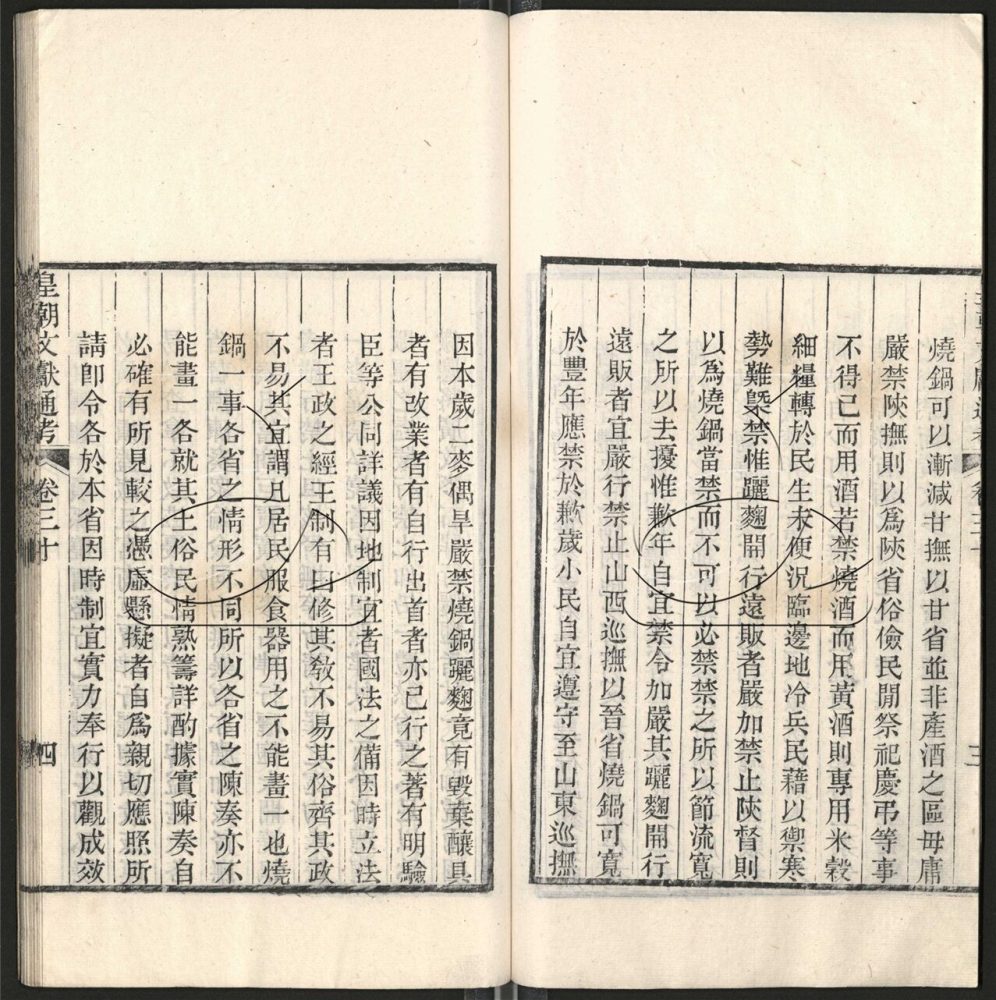 燒鍋可以漸減甘撫以甘省並非產酒之區毋庸
嚴禁陝撫則以爲陝省俗儉民閒祭祀慶弔等事
不得已而用酒若禁燒酒而用黃酒則專用米穀
細糧轉於民生未便況臨邊地冷兵民藉以禦寒
勢難槩禁惟躧麴開行遠販者嚴加禁止陝督則
以爲燒鍋當禁而不可以必禁禁之所以節流寬
之所以去擾惟歉年自宜禁令加嚴其躧麴開行
遠販者宜嚴行禁止山西巡撫以晉省燒鍋可寬
於豐年應禁於歉歲小民自宜遵守至山東巡撫
三
因本歲二麥偶旱嚴禁燒鍋躧麴竟有毀棄釀具
者有改業者有自行出首者亦已行之著有明驗
臣等公同詳議因地制宜者國法之備因時立法
者王政之經王制有曰修其教不易其俗齊其政
不易其宜謂凡居民服食器用之不能畫一也燒
鍋一事各省之情形不同所以各省之陳奏亦不
能畫一各就其土俗民情熟籌詳酌據實陳奏自
必確有所見較之憑虛懸擬者自爲親切應照所
請卽令各於本省因時制宜實力奉行以觀成效
皇朝文獻通考 卷三十 四